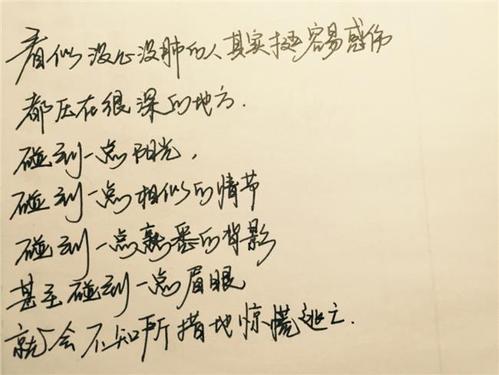 看似没心没肺的人其实挺容易感伤
都压在很深的地方.
碰到一点阳光,
碰到一点相似的情节
碰到一点熟悉的背影
甚至碰到一点眉眼
就会不知所措地惊慌逃亡.